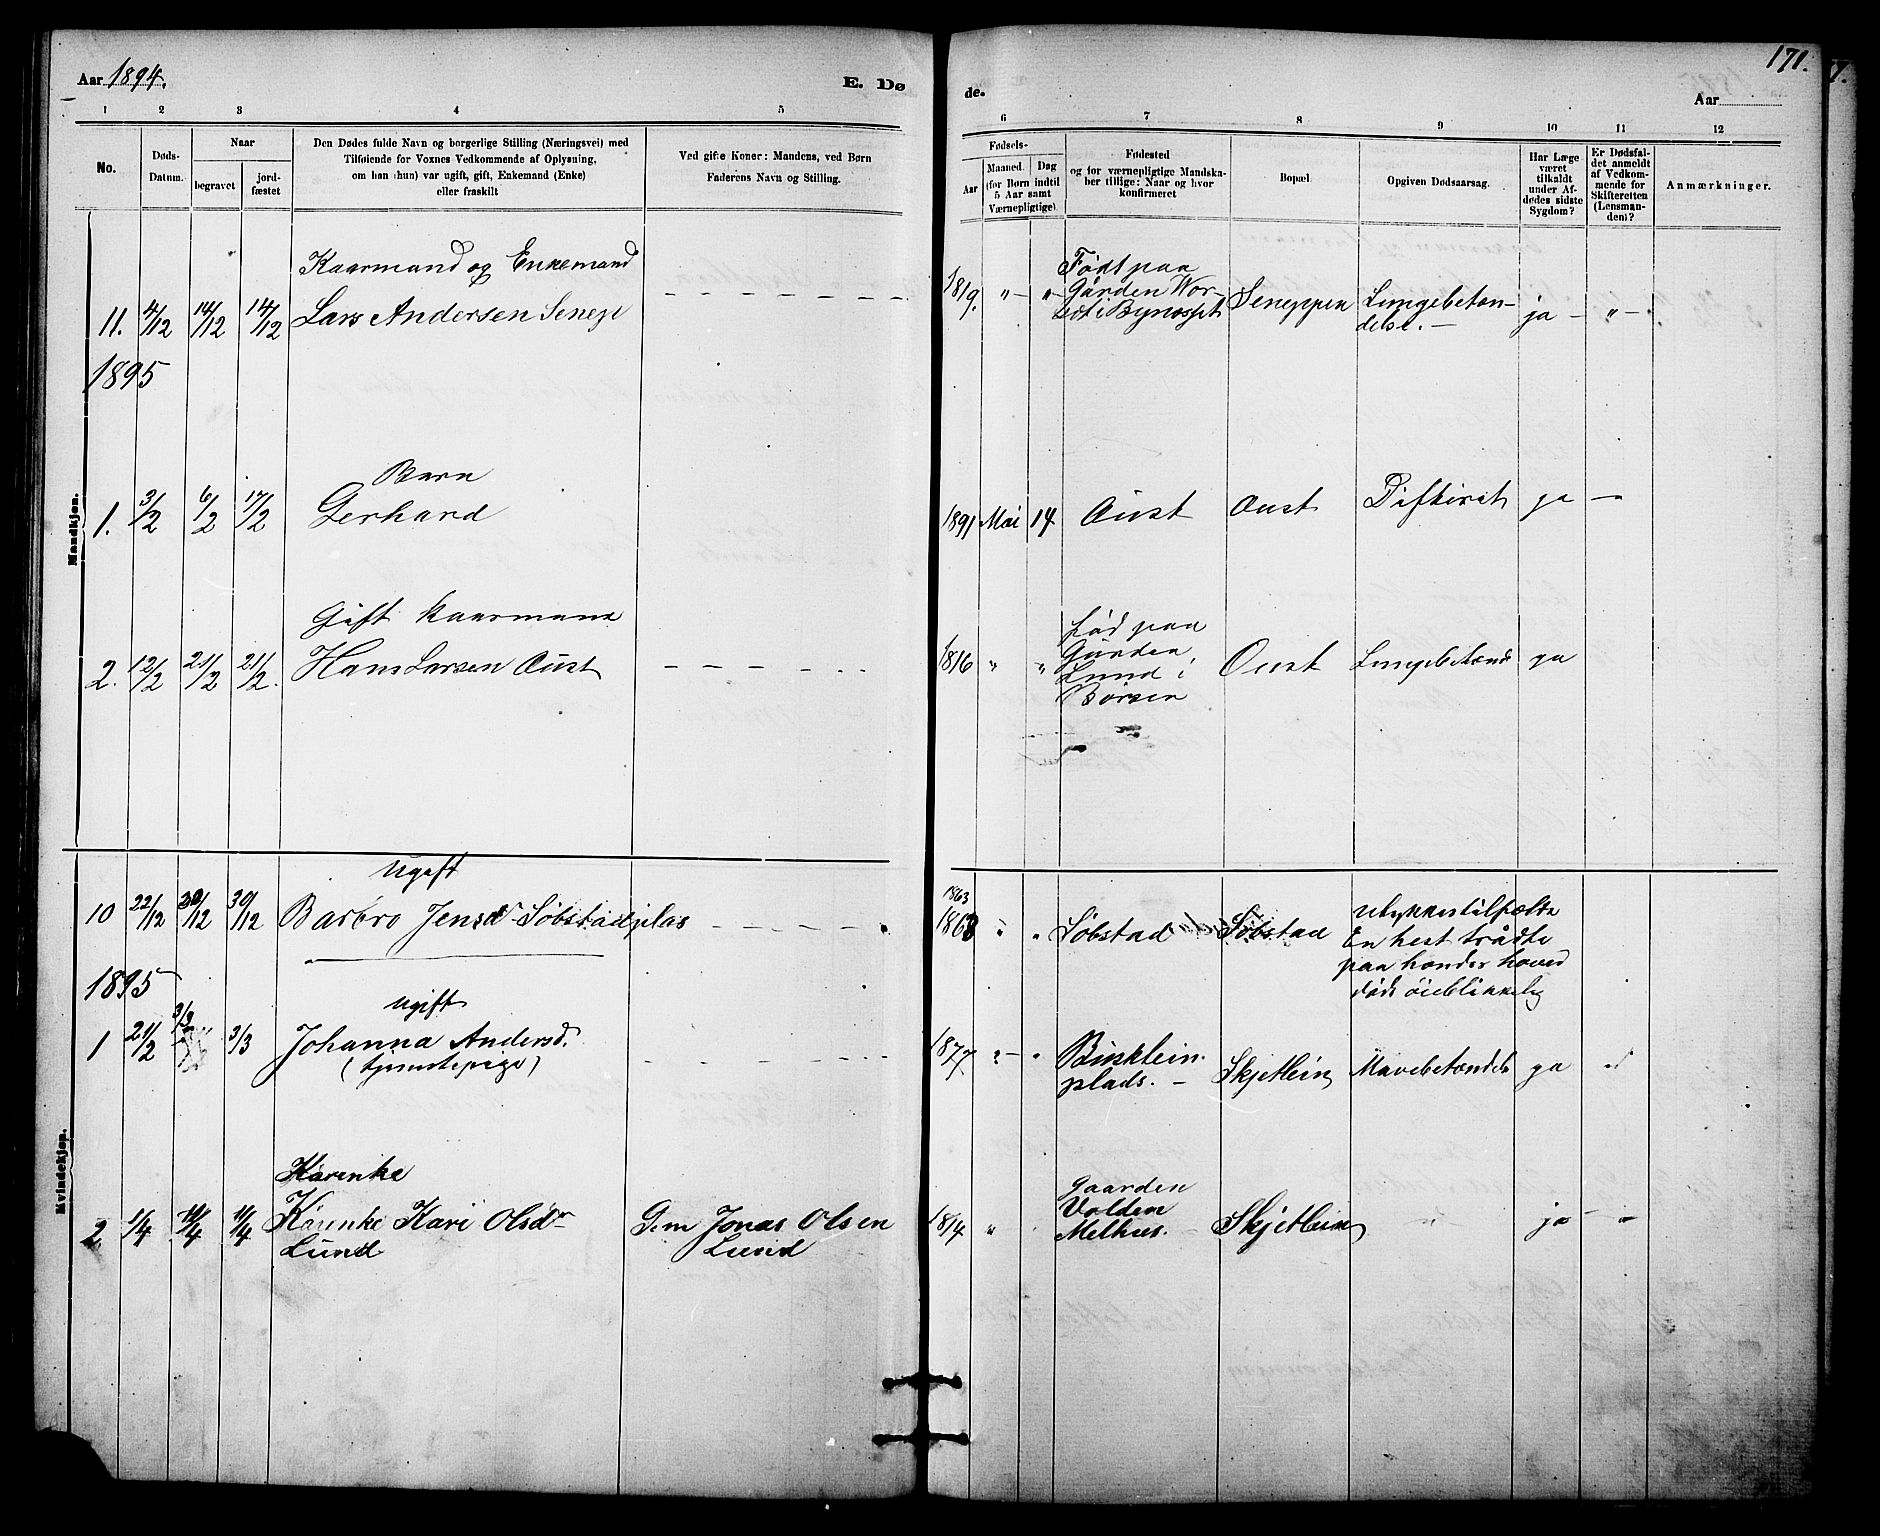 Aar 1894.
E. Dø
1 2 3 4 5
No.
Døds-
Datum.
Naar
begravet
jord-
fæstet
Den Dødes fulde Navn og borgerlige Stilling (Næringsvei) med
Tilføiende for Voxnes Vedkommende af Oplysning,
om han (hun) var ugift, gift, Enkemand (Enke)
eller fraskilt
Ved gifte Koner: Mandens, ved Børn
Faderens Navn og Stilling.
Mandkjøn.
Kaarmand og Enkemand
11. 4/12 14/12 14/12 Lars Andersen
1895
Barn
1. 3/2 6/2 17/2 Gerhard
Gift Kaarmand
2. 12/2 21/2 21/2. Hans Larsen Oust
Kvindekjøn.
Ugift
10 22/12 30/12 30/12 Barbro Jensd. Søbstadplas
1895
ugift
1 21/2 3/3 3/3 Johanna Andersd.
(tjenestepige)
Kårenke
2 1/4 11/4 11/4 Kårenke Kari Olsdr G.m Jonas Olsen
Lund Lund
171.
de.
Aar
6 7 8 9 10 11 12
Fødsels-
Aar
Maaned.
Dag
(for Børn indtil
5 Aar samt
Værnepligtige).
Fødested
og for værnepligtige Mandska-
ber tillige: Naar og hvor
konfirmeret
Bopæl.
Opgiven Dødsaarsag.
Har Læge
været
tilkaldt
under Af-
dødes sidste
Sygdom?
Er Dødsfal-
det anmeldt
af Vedkom-
mende for
Skifteretten
(Lensman-
den)?
Anmærkninger.
Født paa
1819. " " Gården Seneppen Lungebeten-
i Bynesset delse. ja "
1891 Mai 14 Oust Oust Difterit ja
Fød paa
1816 " " Gården Oust Lungebetænd ja
Lund i
Børsen
1863
1863 " " Søbstad Søbstad Ulykkestilfælde
En hest trådte
paa hendes hoved
døde øieblikkelig
1877 " " plads. Skjetlein Mavebetændels ja "
Gaarden
1814 " Volden Skjetlein " ja "
Melhus.